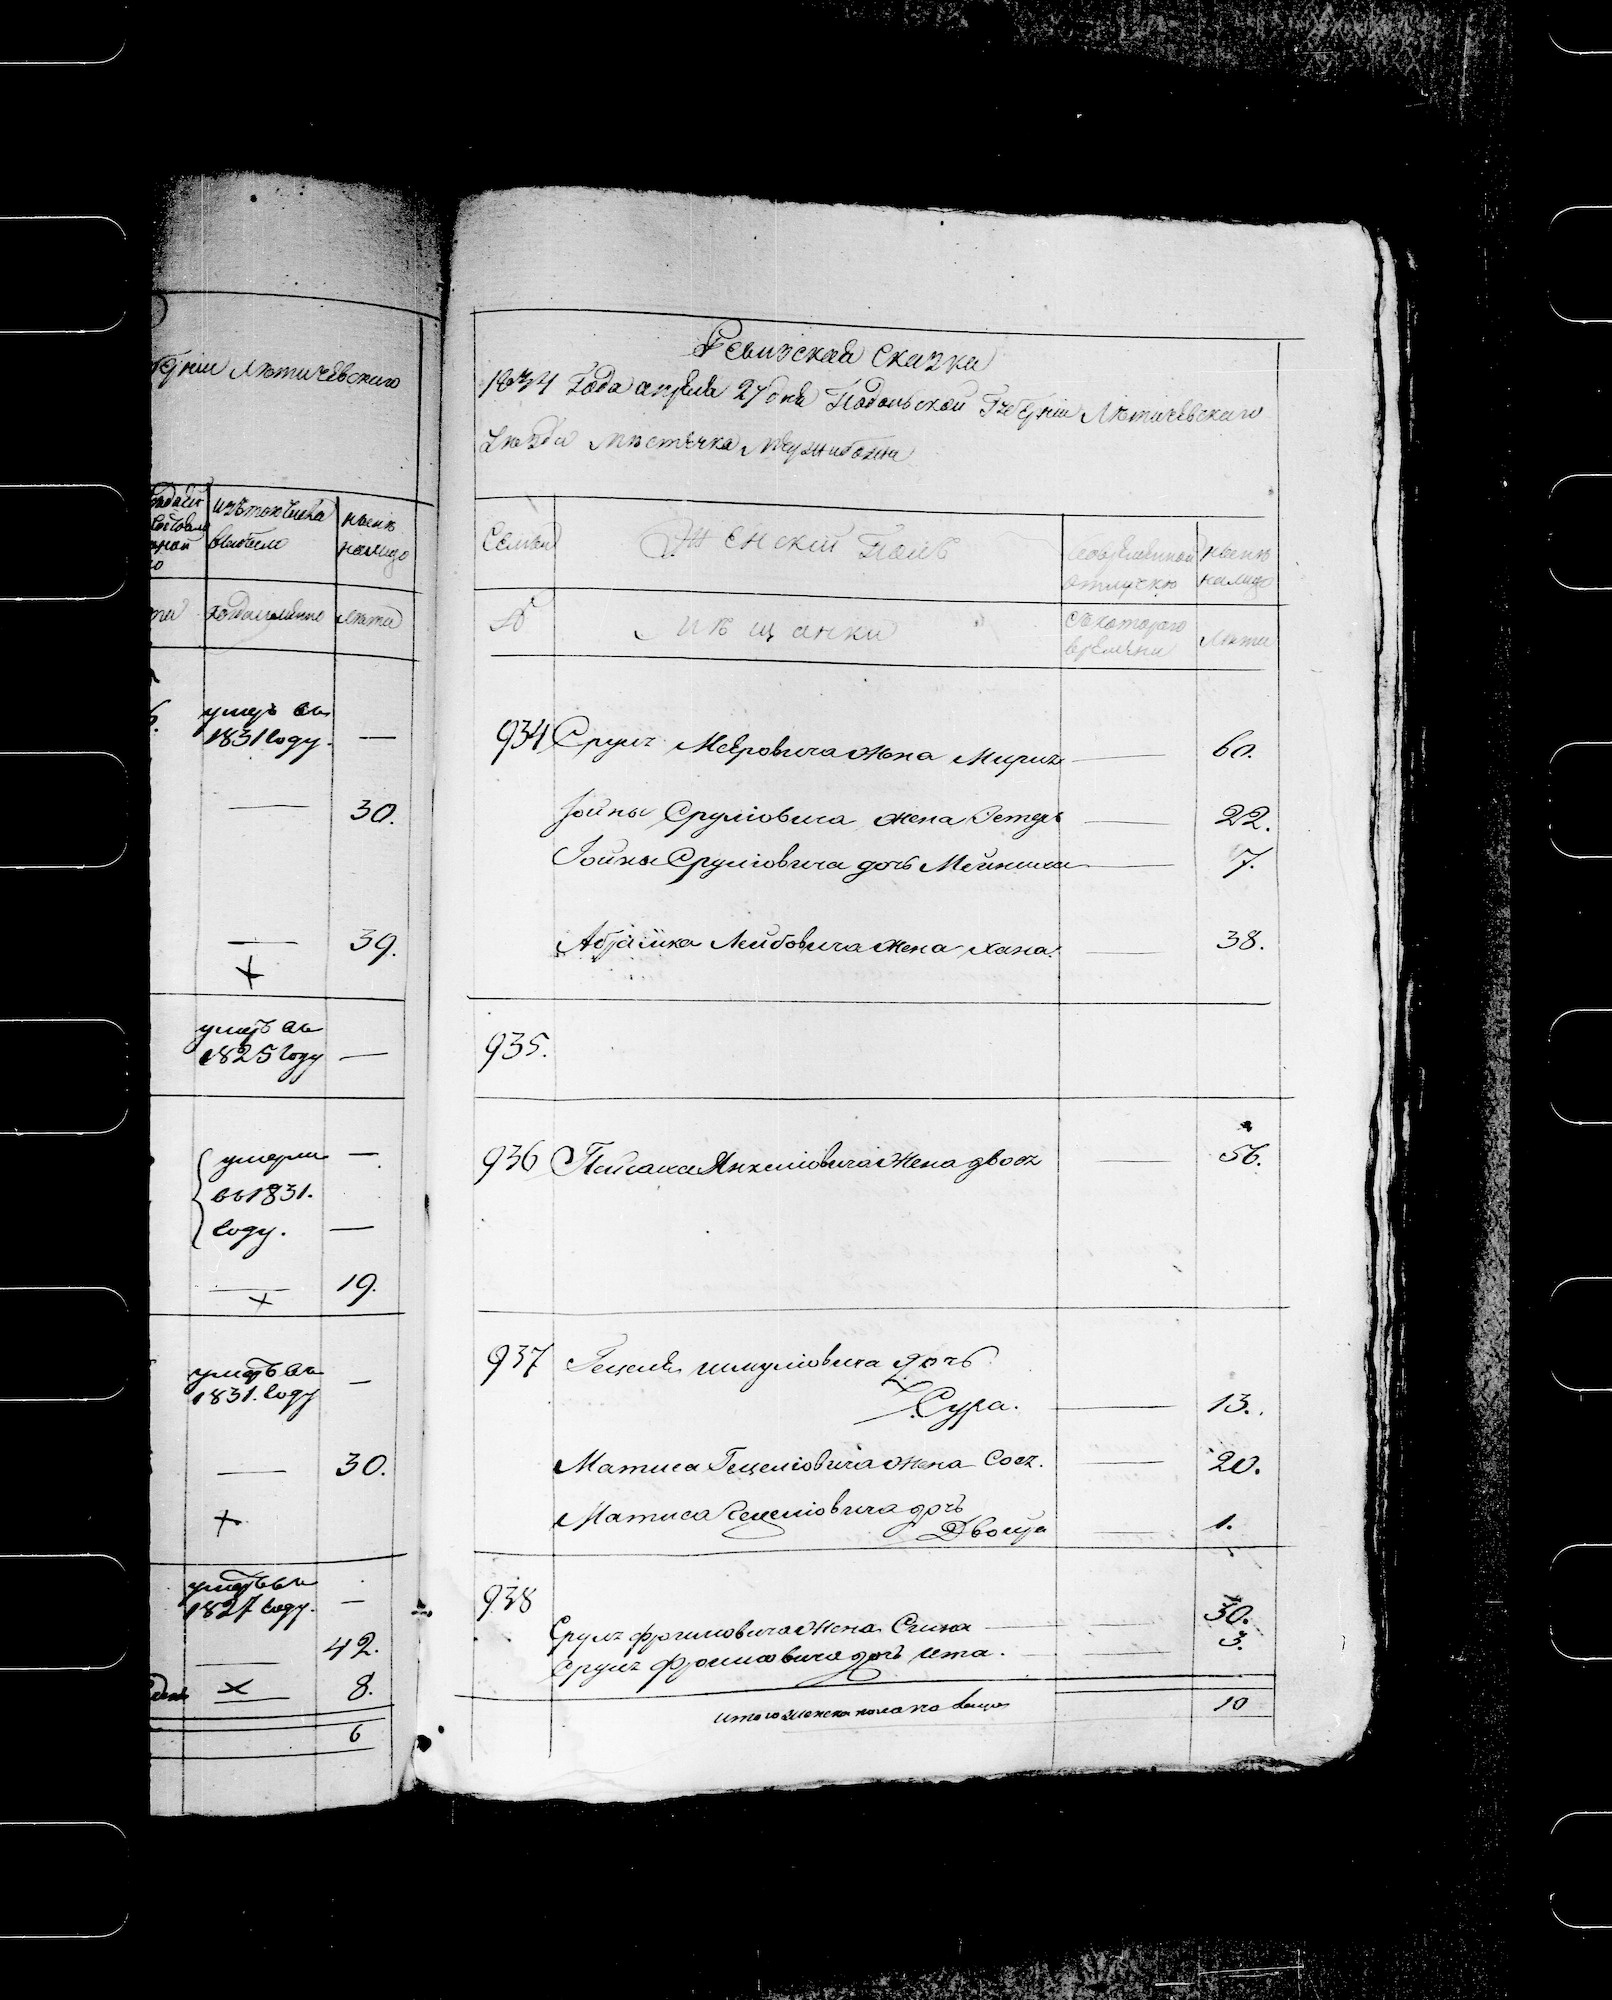 Губніи Лѣтичевскаго
изъ того числа
выбыло
нынѣ
налицо
когда именно
Лѣта
умеръ въ
1831 году. —
— 30.
— 39.
умеръ въ
1825 году —
умерли —
въ 1831.
году. —
— 19.
умеръ въ
1831. году —
— 30.
умеръ въ
1827 году. —
— 42.
— 8.
6
Ревизская Сказка
1834 Года апреля 27 дня Подольской Губніи Лѣтичевскаго
уѣзда мѣстечка Межибожа
Семьи
Женскій Полъ
во временной
отлучкѣ
нынѣ
налицо
№
Мѣщанки
Съ котораго
времени
Лѣта
934 Сруля Меѣровича жена Миря — 60.
Іойны Срулiовича жена Естеръ — 22.
Іойны Срулiовича дочь — 7.
Абрамка Лейбовича жена хана. — 38.
935.
936 Пейсаха Янкелiовича жена двося — 56.
937 Гецеля шмулiовича дочь
Сура. — 13.
Матиса Гецелiовича жена Сося. — 20.
Матиса Гецелiовича дочь
Двойра — 1.
938
Сруля фроимовича жена — 30.
Сруля фроимовича дочь — 3.
итого женска пола на лицо 10